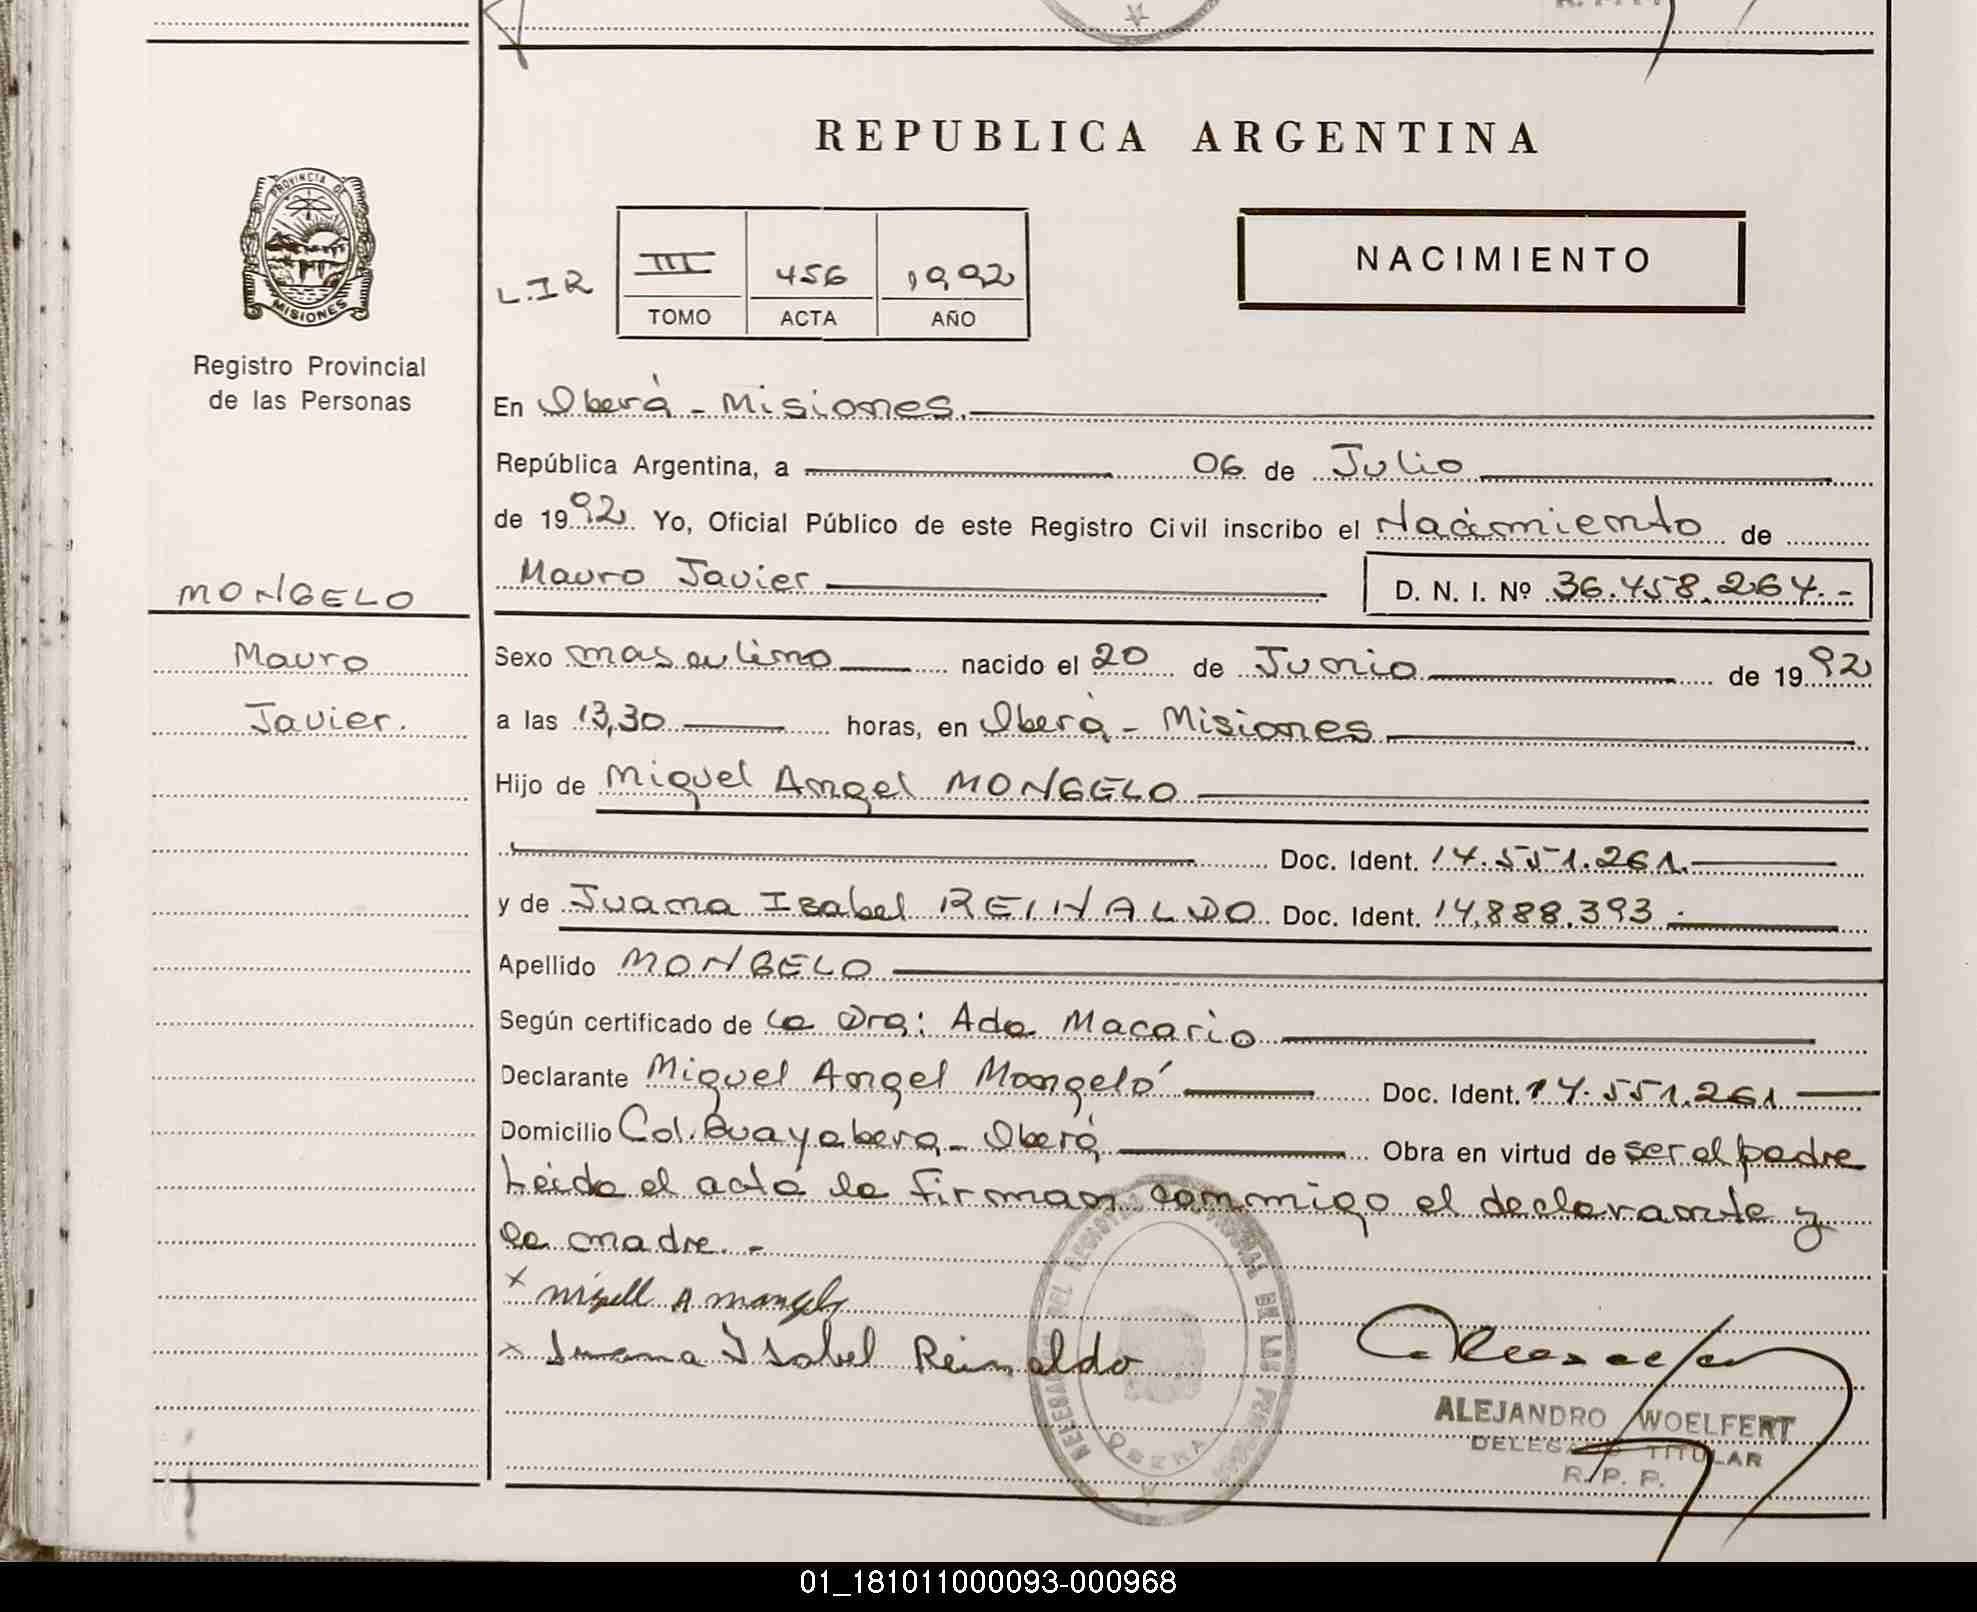 REPUBLICA ARGENTINA
PROVINCIA DE
MISIONES
Registro Provincial
de las Personas
L.I.R
III 456 1992
TOMO ACTA AÑO
NACIMIENTO
En Oberá - Misiones.
República Argentina, a 06 de Julio
de 1992. Yo, Oficial Público de este Registro Civil inscribo el Nacimiento de
Mauro Javier D. N. I. Nº 36.458.264.-
MONGELO
Mauro
Javier.
Sexo masculino nacido el 20 de Junio de 1992
a las 13,30 horas, en Oberá - Misiones
Hijo de Miguel Angel MONGELO
Doc. Ident. 14.551.261.
y de Juana Isabel REINALDO Doc. Ident. 14.888.393.
Apellido MONGELO
Según certificado de la Dra: Ada Macario
Declarante Miguel Angel Mongeló Doc. Ident. 14.551.261
Domicilio Col. Guayabera - Oberá Obra en virtud de ser el padre
Leida el acta la firman conmigo el declarante y
la madre. -
x Migell A mongelo
x Juana Isabel Reinaldo
DEL REGISTRO PROVINCIAL DE LAS PERSONAS
OBERA
ALEJANDRO WOELFERT
DELEGADO TITULAR
R. P. P.
01_181011000093-000968